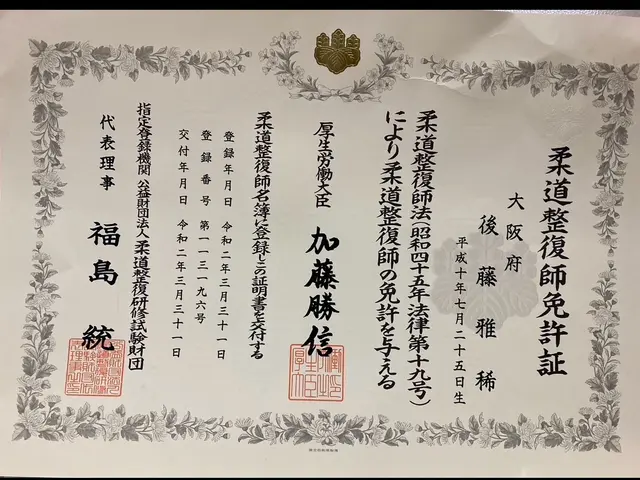 柔道整復師免許証
大阪府
後藤雅稀
平成十年七月二十五日生
柔道整復師法(昭和四十五年法律第十九号)
により柔道整復師の免許を与える
厚生労働大臣 加藤勝信
柔道整復師名簿に登録しこの証明書を交付する
登録年月日 令和二年三月三十一日
登録番号 第一一三一九六号
交付年月日 令和二年三月三十一日
指定登録機関 公益財団法人柔道整復研修試験財団
代表理事 福島統